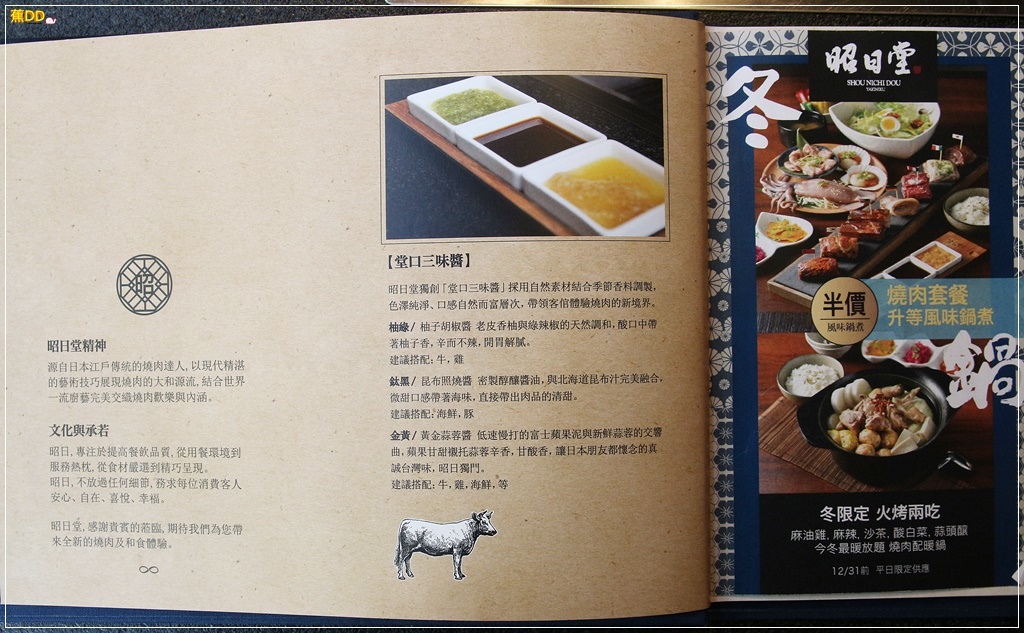 蕉DD
昭
昭日堂精神
源自日本江戶傳統的燒肉達人, 以現代精湛
的藝術技巧展現燒肉的大和源流, 結合世界
一流廚藝完美交織燒肉歡樂與內涵。
文化與承若
昭日, 專注於提高餐飲品質, 從用餐環境到
服務熱枕, 從食材嚴選到精巧呈現。
昭日, 不放過任何細節, 務求每位消費客人
安心、自在、喜悅、幸福。
昭日堂, 感謝貴賓的蒞臨, 期待我們為您帶
來全新的燒肉及和食體驗。
【堂口三味醬】
昭日堂獨創「堂口三味醬」採用自然素材結合季節香料調製,
色澤純淨、口感自然而富層次, 帶領客倌體驗燒肉的新境界。
柚綠 / 柚子胡椒醬 老皮香柚與綠辣椒的天然調和, 酸口中帶
著柚子香, 辛而不辣, 開胃解膩。
建議搭配: 牛, 雞
鈦黑 / 昆布照燒醬 密製醇釀醬油, 與北海道昆布汁完美融合,
微甜口感帶著海味, 直接帶出肉品的清甜。
建議搭配: 海鮮, 豚
金黃 / 黃金蒜蓉醬 低速慢打的富士蘋果泥與新鮮蒜蓉的交響
曲, 蘋果甘甜襯托蒜蓉辛香, 甘酸香, 讓日本朋友都懷念的真
誠台灣味, 昭日獨門。
建議搭配: 牛, 雞, 海鮮, 等
昭日堂
SHOU NICHI DOU
YAKINIKU
冬
半價
風味鍋煮
燒肉套餐
升等風味鍋煮
鍋
冬限定 火烤兩吃
麻油雞, 麻辣, 沙茶, 酸白菜, 蒜頭釀
今冬最暖放題 燒肉配暖鍋
12/31前 平日限定供應